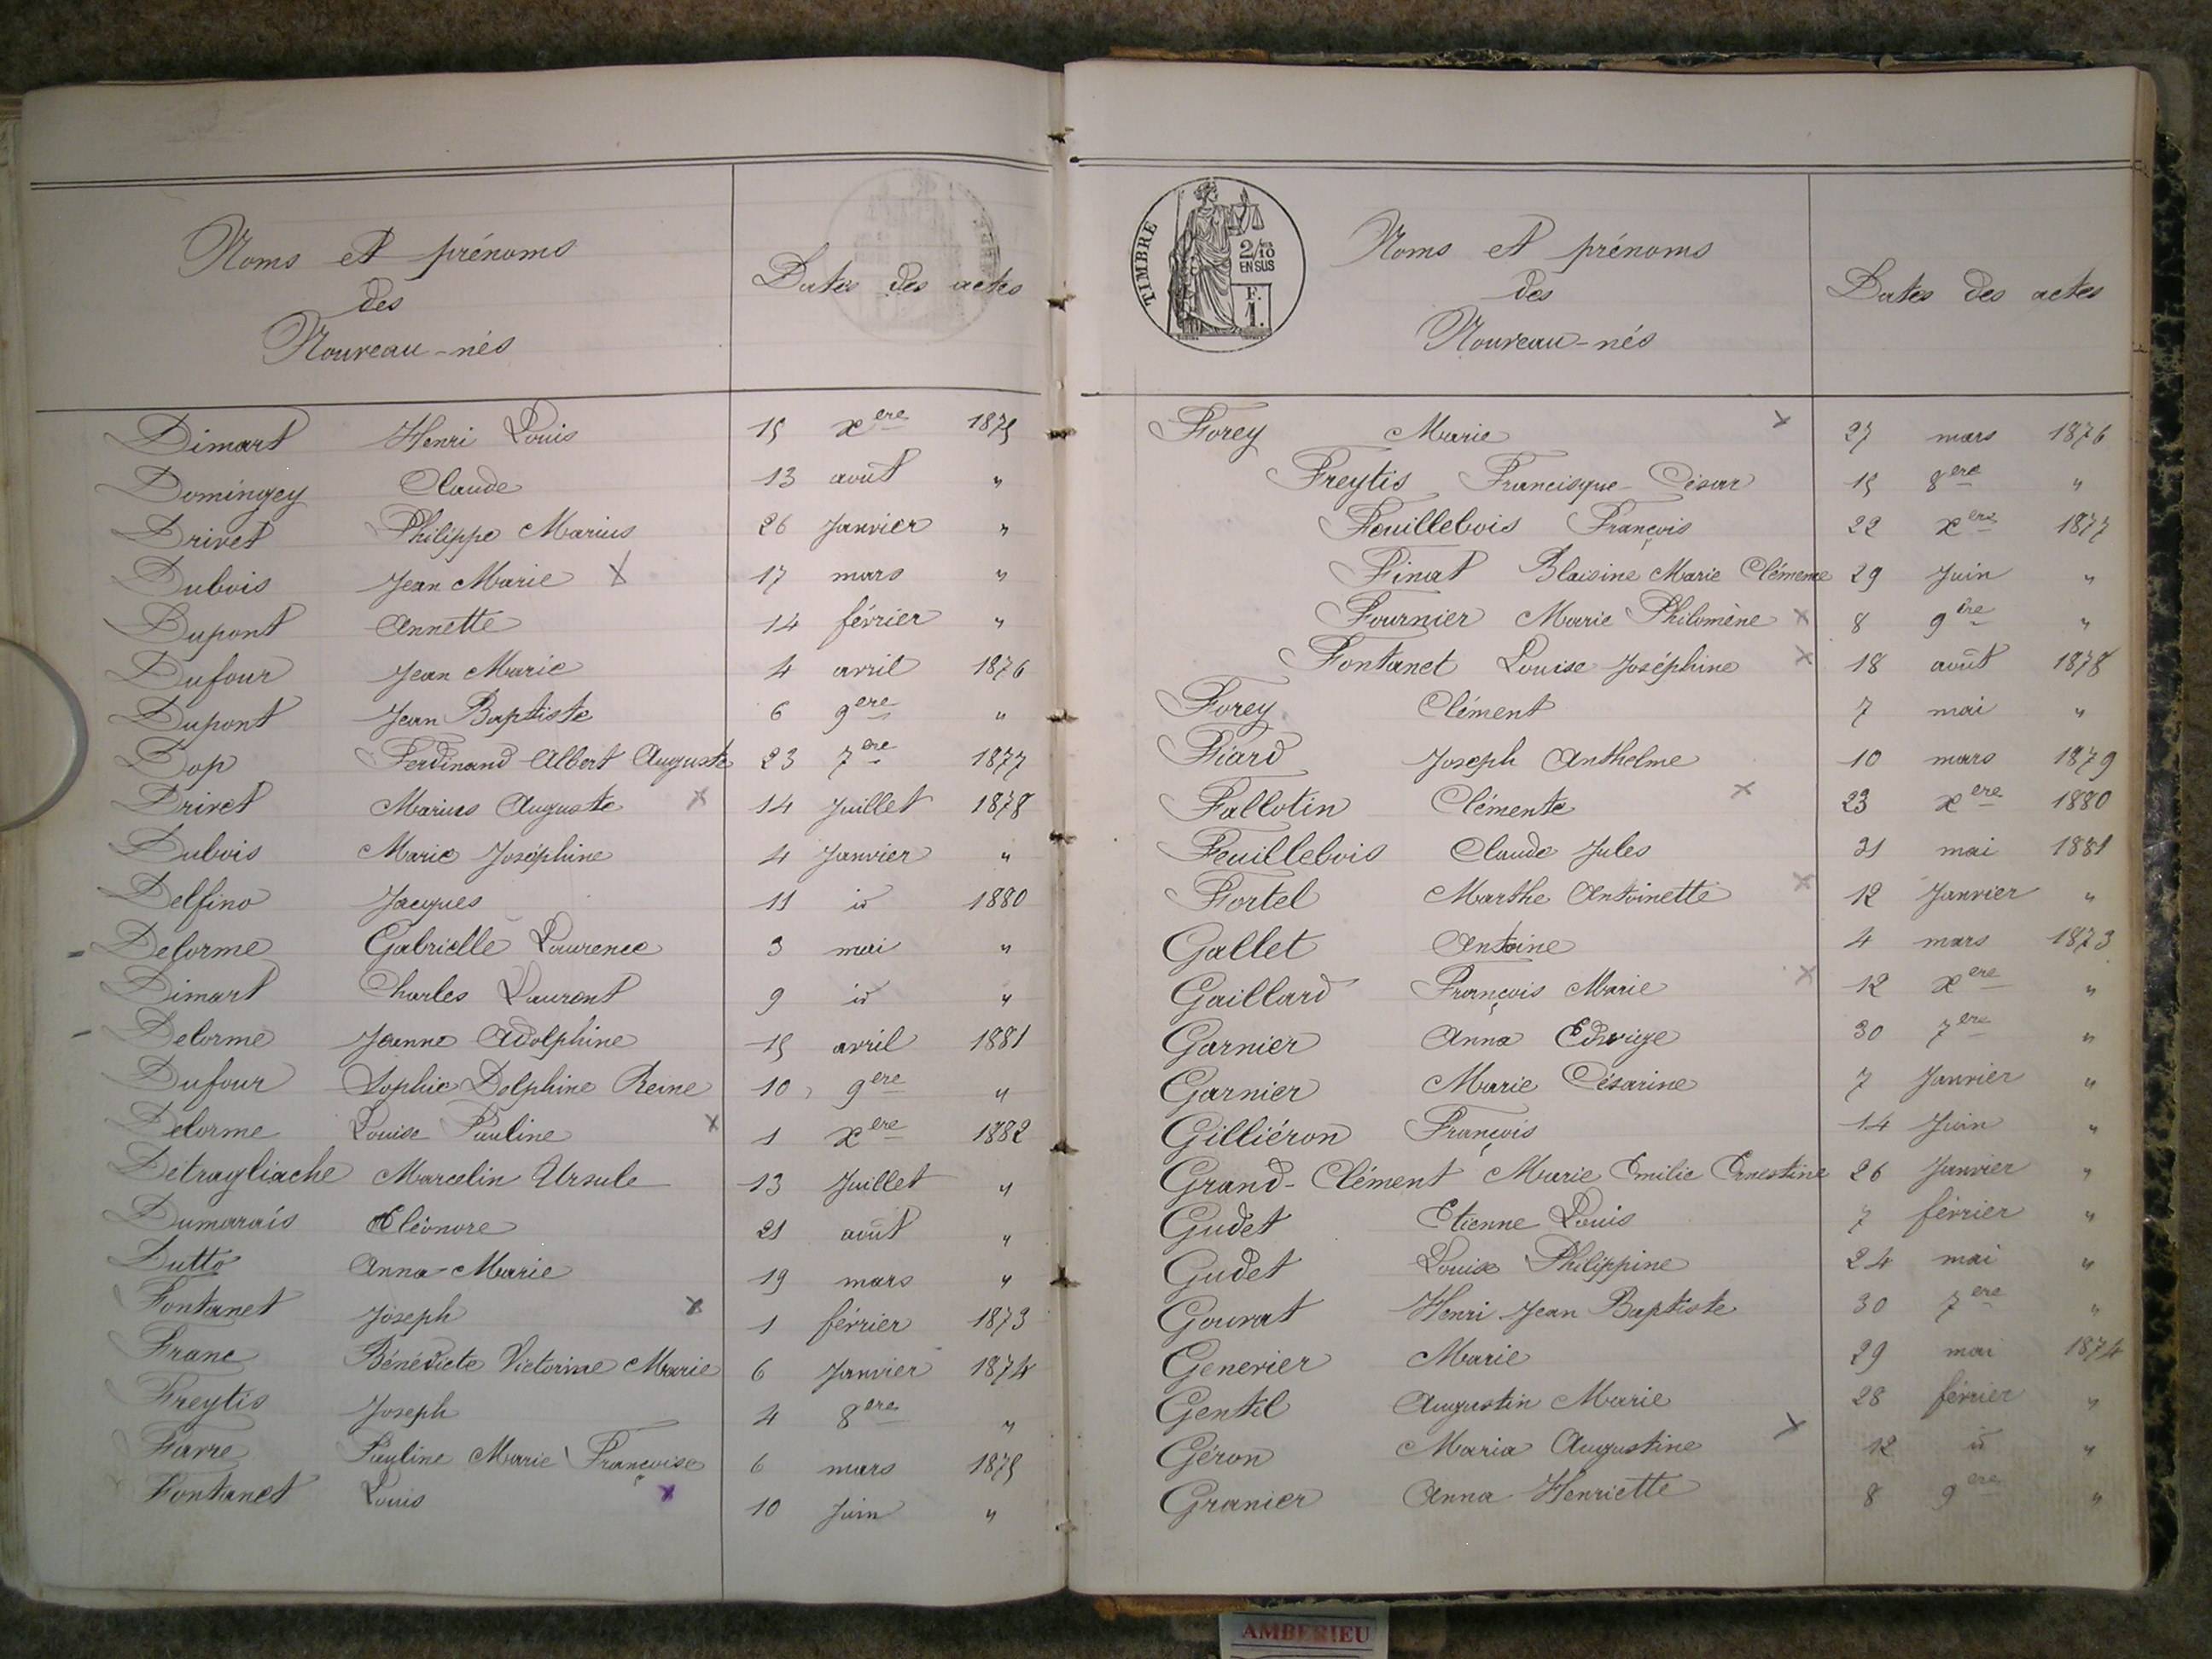 Noms et prénoms
des
Nouveau-nés
Dates des actes
Dimart Henri Louis 15 xere 1875
Domingey Claude 13 août "
Drivet Philippe Marius 26 Janvier "
Dubois Jean Marie X 17 mars "
Dupont Annette 14 février "
Dufour Jean Marie 4 avril 1876
Dupont Jean Baptiste 6 9ere "
Dop Ferdinand Albert Auguste 23 7ere 1877
Drivet Marius Auguste X 14 Juillet 1878
Dubois Marie Joséphine 4 Janvier "
Delfino Jacques 11 id 1880
Delorme Gabrielle Laurence 3 mai "
Dimart Charles Laurent 9 id "
Delorme Jeanne Adolphine 15 avril 1881
Dufour Sophie Delphine Reine 10 9ere "
Delorme Louise Pauline X 1 xere 1882
Détragliache Marcelin Ursule 13 Juillet "
Dumarais Eléonore 21 août "
Dutto Anna-Marie 19 mars "
Fontanet Joseph X 1 février 1873
Franc Bénédicte Victorine Marie 6 Janvier 1874
Freytis Joseph 4 8ere "
Favre Pauline Marie Françoise 6 mars 1875
Fontanet Louis X 10 Juin "
TIMBRE
2/10 EN SUS
F. 1.
Noms et prénoms
des
Nouveau-nés
Dates des actes
Forey Marie X 27 mars 1876
Freytis Francisque César 15 8ere "
Feuillebois François 22 xere 1877
Finat Blaisine Marie Clémence 29 Juin "
Fournier Marie Philomène X 8 9ere "
Fontanet Louise Joséphine X 18 août 1878
Forey Clément 7 mai "
Fiard Joseph Anthelme 10 mars 1879
Fallotin Clémente X 23 xere 1880
Feuillebois Claude Jules 31 mai 1881
Fortel Marthe Antoinette X 12 Janvier "
Gallet Antoine 4 mars 1873
Gaillard François Marie X 12 xere "
Garnier Anna Edwige 30 7ere "
Garnier Marie Césarine 7 Janvier "
Gilliéron François 14 Juin "
Grand-Clément Marie Emilie Ernestine 26 Janvier "
Gudet Etienne Louis 7 février "
Gudet Louise Philippine 24 mai "
Gourat Henri Jean Baptiste 30 7ere "
Genevier Marie 29 mai 1874
Gentil Augustin Marie 28 février "
Géron Maria Augustine X 12 id "
Granier Anna Henriette 8 9ere "
AMBERIEU